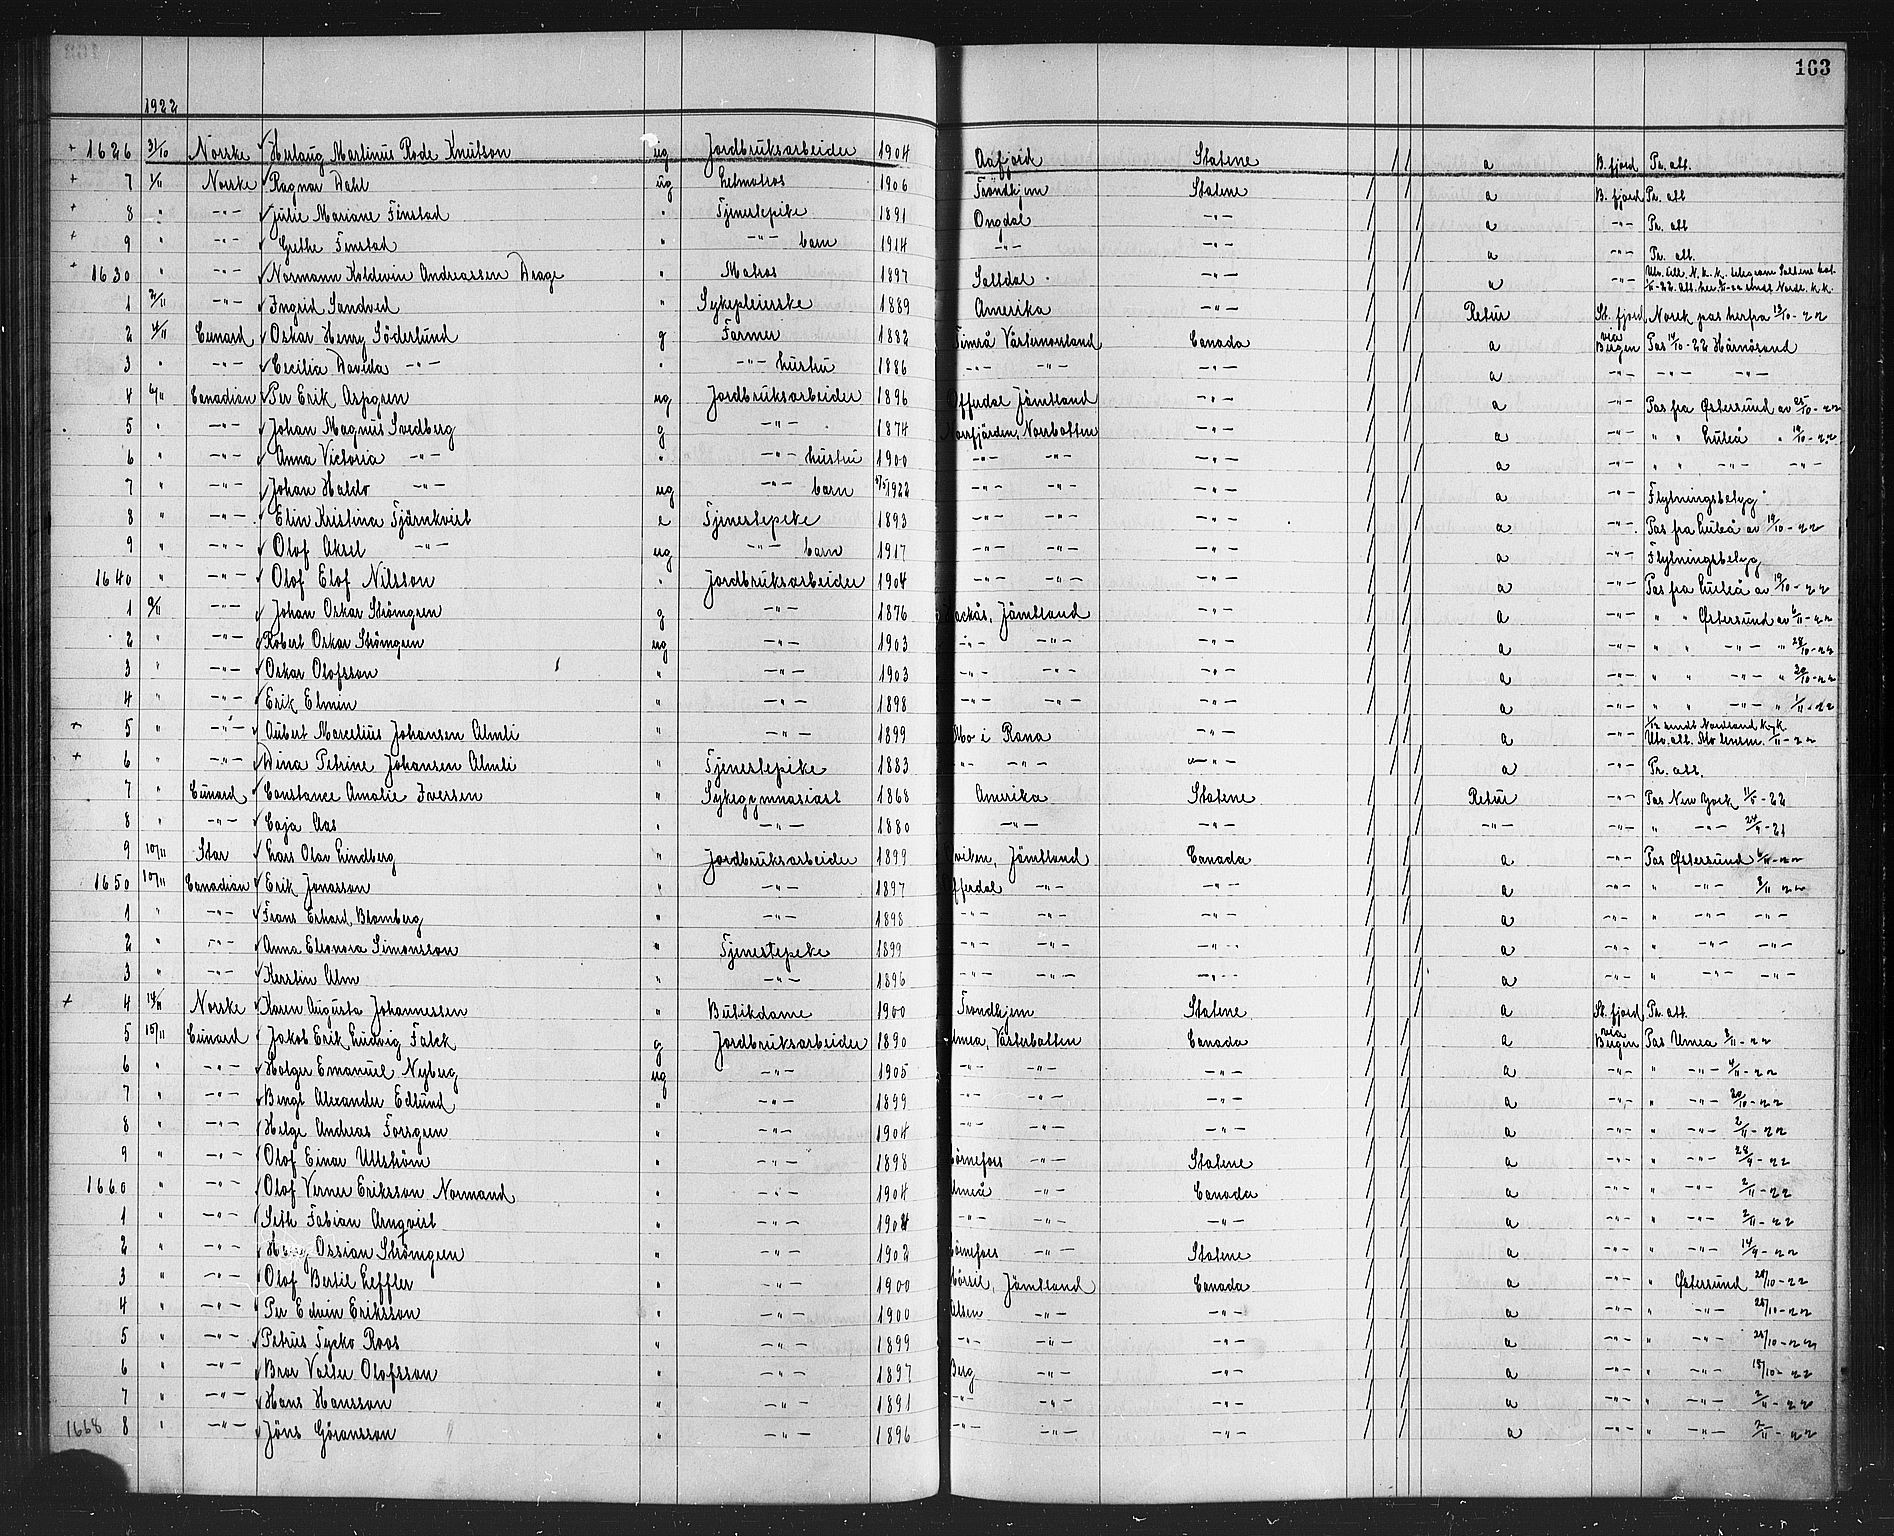 163
1922
+ 1626 31/10 Norske Herlaug Martinus Rode Knutson ug Jordbruksarbeider 1904 Aafjord Statene / / a B. fjord Pr. att.
+ 7 1/11 Norske Ragnar Dahl ug Letmatros 1906 Trondhjem Statene / / a B. fjord Pr. att
+ 8 " -"- Julie Mariane Finstad " Tjenestepike 1891 Opdal -"- / / a -"- Pr. att
+ 9 " -"- Grethe Finstad " -"- barn 1914 -"- -"- / / a -"- Pr. att.
+ 1630 " -"- Normann Koldevin Andreassen Drage " Matros 1897 Saltdal -"- / / a -"-
1 2/11 -"- Ingrid Sandved " Sykepleierske 1889 Amerika -"- / / Retur St. fjord Norsk pas herfra 13/10-22
2 4/11 Cunard Oskar Henry Söderlund g Farmer 1882 Timrå Västernorrland Canada / / a via Bergen Pas 14/10-22 Härnösand
3 " -"- Cecilia Davida -"- " -"- hustru 1886 -"- -"- -"- / / a -"- -"- -"-
4 6/11 Canadian Per Erik Aspgren ug Jordbruksarbeider 1896 Offerdal Jämtland -"- / / a -"- Pas fra Østersund av 25/10-22
5 " -"- Johan Magnus Svedberg g -"- 1874 Norrfjärden, Norrbotten -"- / / a -"- " " Luleå " 19/10-22
6 " -"- Anna Victoria -"- " -"- hustru 1900 -"- -"- -"- / / a -"- " " -"- -"-
7 " -"- Johan Haldo -"- ug -"- barn 1922 -"- -"- -"- / / a -"- Flytningsbetyg
8 " -"- Elin Kristina Tjärnkvist e Tjenestepike 1893 -"- -"- -"- / / a -"- Pas fra Luleå av 19/10-22
9 " -"- Olof Aksel -"- ug -"- barn 1917 -"- -"- -"- / / a -"- Flytningsbetyg
1640 " -"- Olof Elof Nilsson " Jordbruksarbeider 1904 -"- -"- -"- / / a -"- Pas fra Luleå av 19/10-22
1 9/11 -"- Johan Oskar Strömgren g -"- 1876 Hackås, Jämtland -"- / / a -"- " " Østersund av 6/11-22
2 " -"- Robert Oskar Strömgren ug -"- 1903 -"- -"- -"- / / a -"- " " -"- " 28/10-22
3 " -"- Oskar Olofsson " -"- 1903 -"- -"- -"- / / a -"- " " -"- " 30/10-22
4 " -"- Erik Elmin " -"- 1898 -"- -"- -"- / / a -"- " " -"- " 1/11-22
+ 5 " -"- Aubert Marcelius Johansen Almli " -"- 1899 Mo i Rana -"- / / a
+ 6 " -"- Dina Petrine Johansen Almli " Tjenestepike 1883 -"- -"- -"- / / a -"- Pr. att.
7 " Cunard Constance Amalie Iversen " Sykegymnasiast 1868 Amerika Statene / / Retur -"- Pas New York 11/5-22
8 " -"- Caja Aas " -"- 1880 -"- -"- / / -"- -"- " -"- 24/9-21
9 10/11 Star Lars Olav Lindberg " Jordbruksarbeider 1899 Oviken, Jämtland Canada / / a -"- Pas Østersund 6/11-22
1650 10/11 Canadian Erik Jonasson " -"- 1897 Offerdal -"- -"- / / a -"- " -"- 3/11 22
1 " -"- Frans Erhard Blomberg " -"- 1898 -"- -"- -"- / / a -"- " -"- -"-
2 " -"- Anna Eleonora Simonsson " Tjenestepike 1899 -"- -"- -"- / / a -"- " -"- -"-
3 " -"- Kerstin Alm " -"- 1896 -"- -"- -"- / / a -"- " -"- -"-
+ 4 14/11 Norske Karen Augusta Johannessen " Butikdame 1900 Trondhjem Statene / / a St. fjord Pr. att.
5 15/11 Cunard Jakob Erik Ludvig Falck g Jordbruksarbeider 1890 Umea, Västerbotten Canada / / a via Bergen Pas Umea 8/11-22
6 " -"- Holger Emanuel Nyberg ug -"- 1905 -"- -"- -"- / / a -"- " -"- 4/11-22
7 " -"- Bengt Alexander Edlund " -"- 1899 -"- -"- -"- / / a -"- " -"- 30/10-22
8 " -"- Helge Andreas Forsgren " -"- 1904 -"- -"- -"- / / a -"- " -"- 2/11-22
9 " -"- Olof Einar Ullström " -"- 1898 Hörnefors -"- Statene / / a -"- " -"- 28/9-22
1660 " -"- Olof Verner Eriksson Normand " -"- 1904 Umeå -"- Canada / / a -"- " -"- 2/11-22
1 " -"- Seth Fabian Arnqvist " -"- 1904 -"- -"- -"- / / a -"- " -"- 2/11-22
2 " -"- Ossian Strömgren " -"- 1902 Hörnefors -"- Statene / / a -"- " -"- 14/9-22
3 " -"- Olof Bertil Leffler " -"- 1900 Mörsil, Jämtland Canada / / a -"- " Østersund 28/10-22
4 " -"- Per Edvin Eriksson " -"- 1900 Alsen -"- -"- / / a -"- " -"- 28/10-22
5 " -"- Petrus Tycko Roos " -"- 1899 -"- -"- -"- / / a -"- " -"- 28/10-22
6 " -"- Bror Valter Olofsson " -"- 1897 Berg -"- -"- / / a -"- " -"- 18/10-22
7 " -"- Hans Hansson " -"- 1891 -"- -"- -"- / / a -"- " -"- 2/11-22
1668 8 " -"- Jöns Göransson " -"- 1896 -"- -"- -"- / / a -"- " -"- 2/11-22